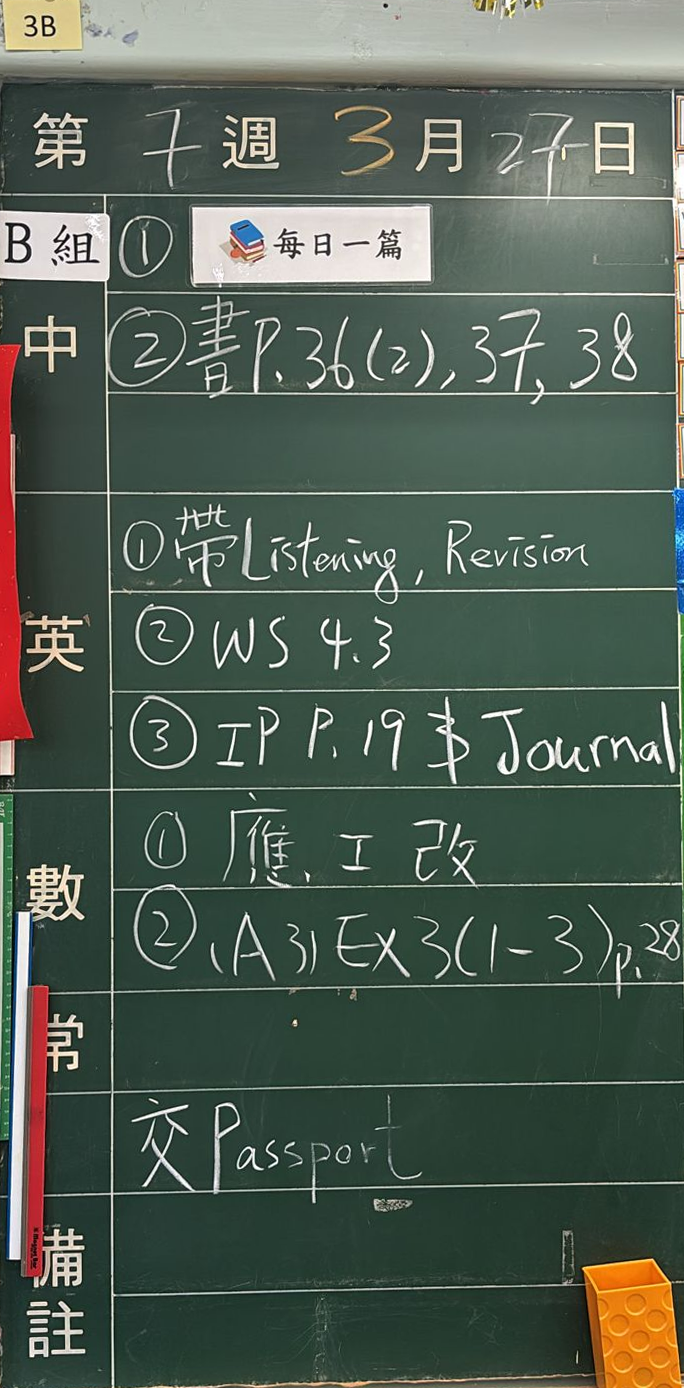 3B
第 7 週 3 月 27 日
B 組 ① 每日一篇
中 ② 書 P. 36 (2), 37, 38
英
① 帶 Listening, Revision
② WS 4.3
③ IP P. 19 Journal
數
① 應. 工 改
② (A3) Ex 3 (1-3) p. 28
常
交 Passport
備註